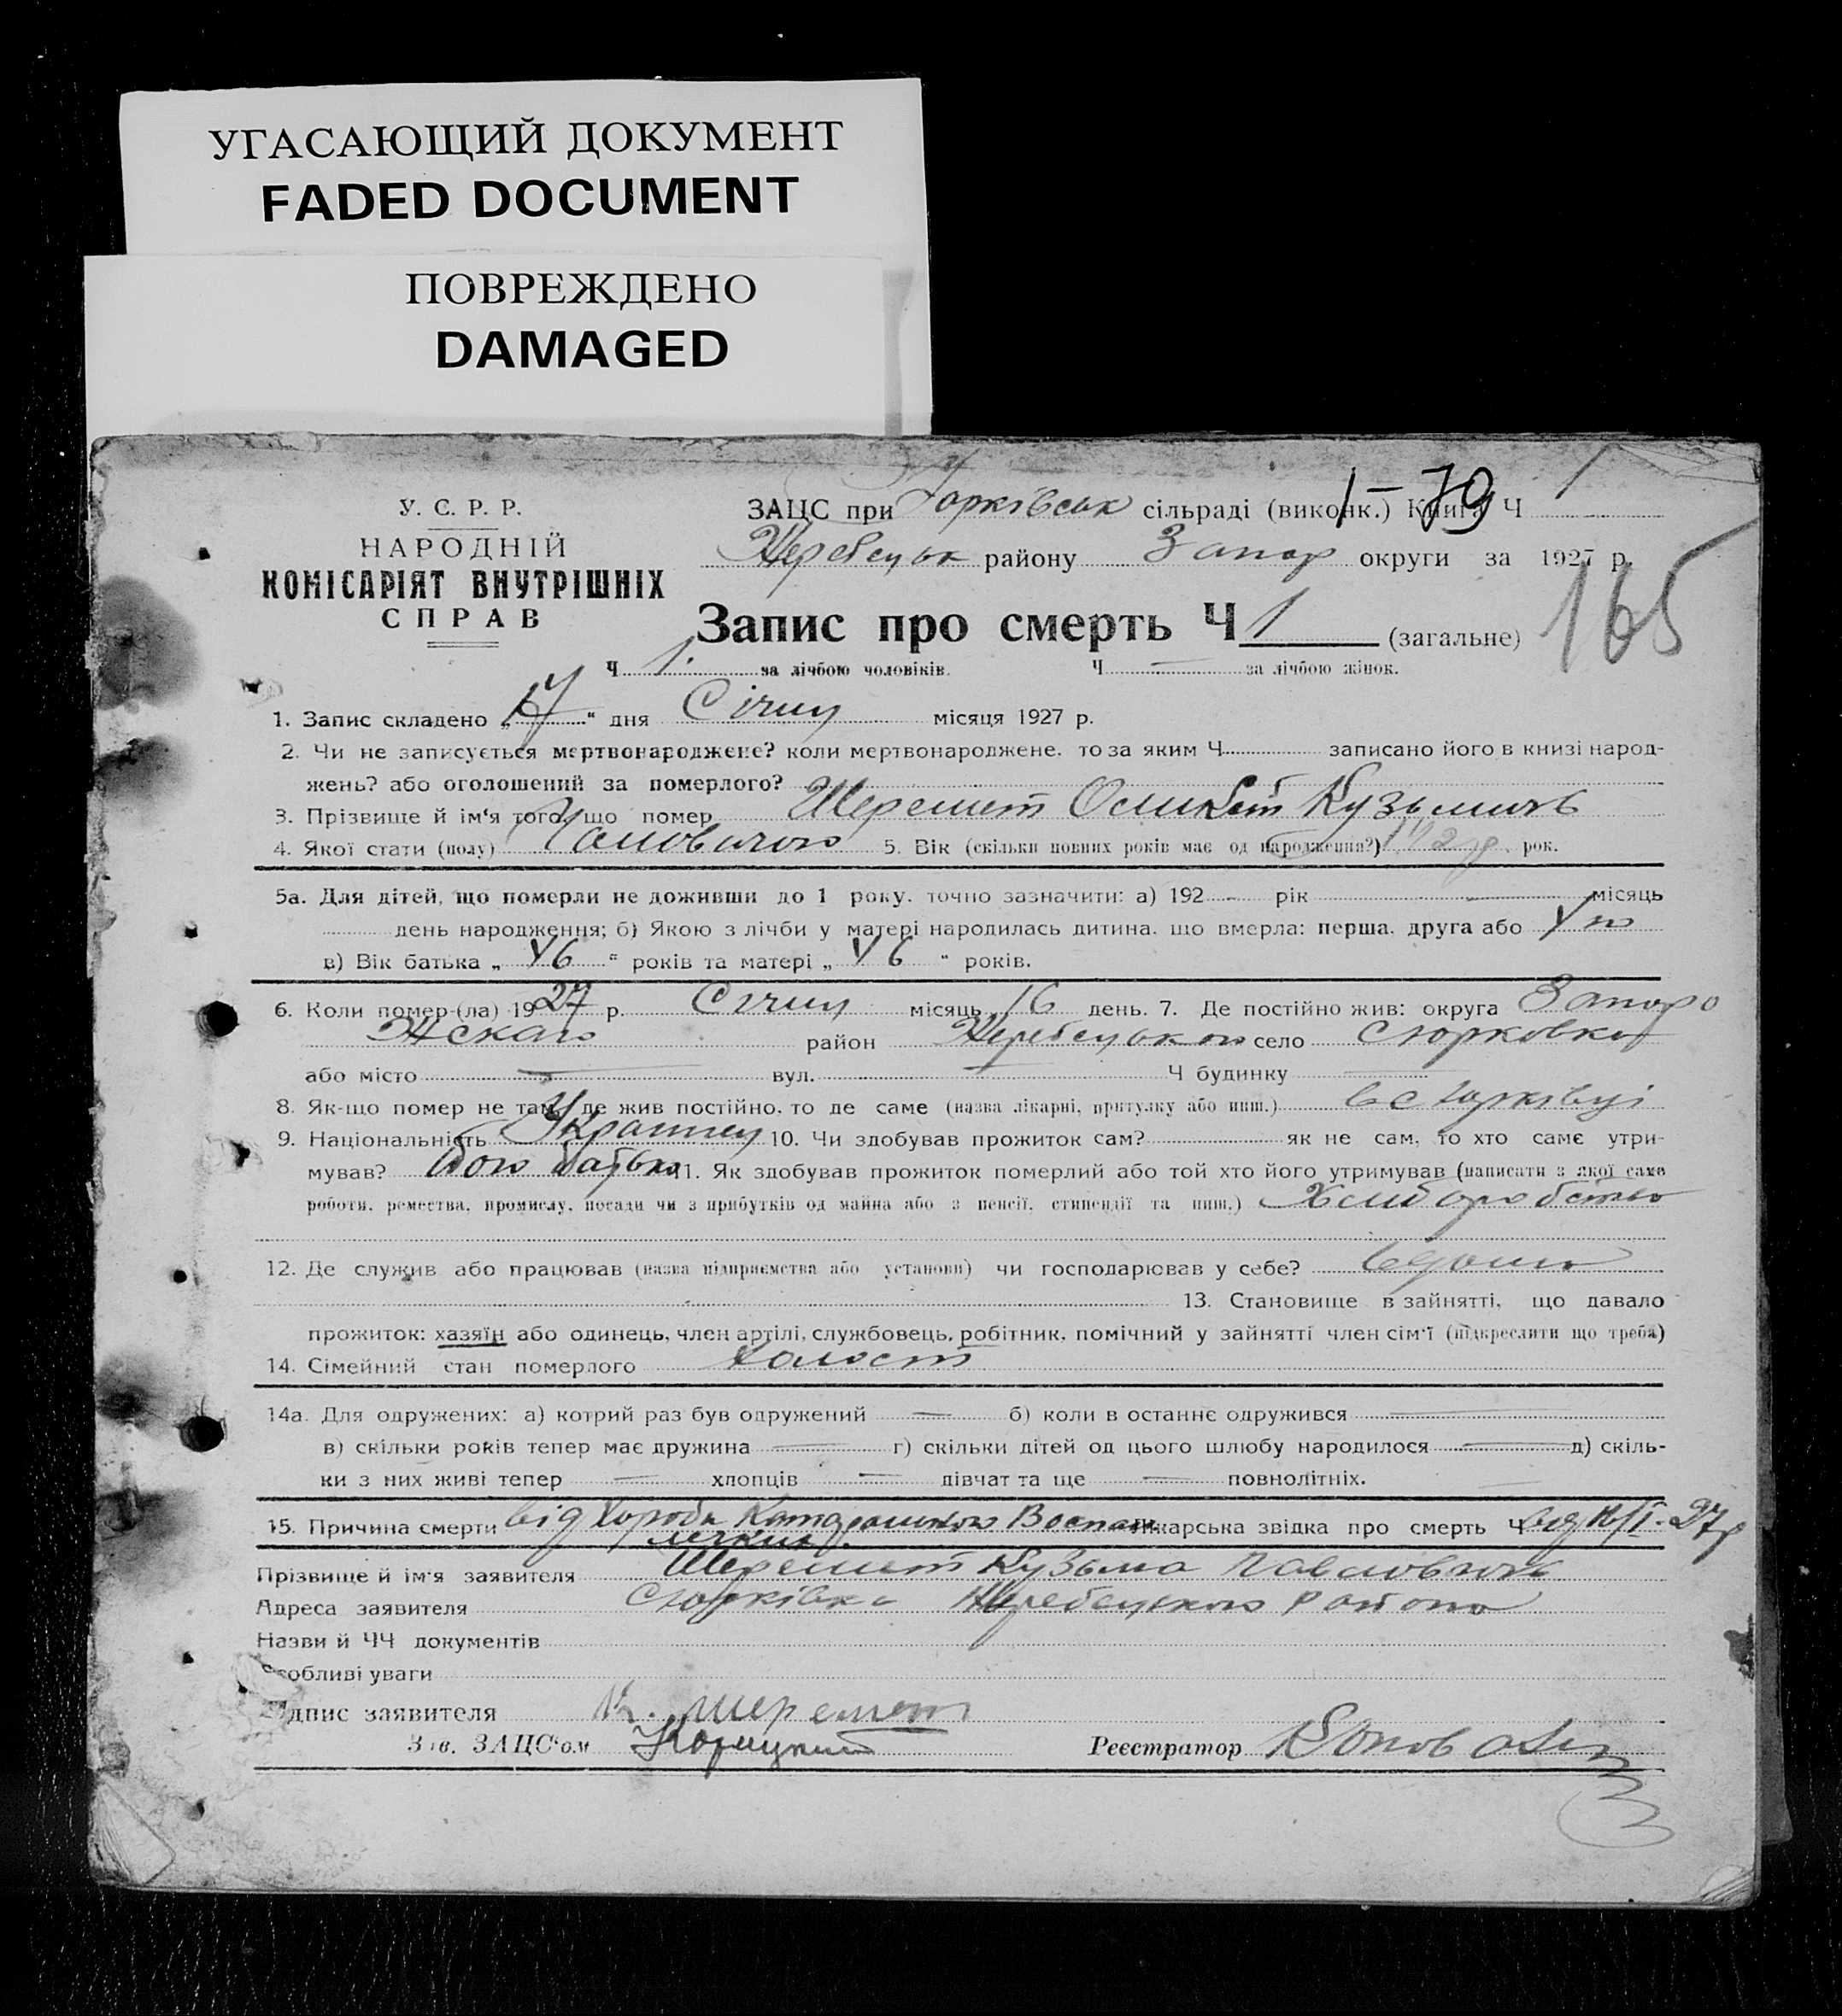 УГАСАЮЩИЙ ДОКУМЕНТ
FADED DOCUMENT
ПОВРЕЖДЕНО
DAMAGED
1-79
У. С. Р. Р.
НАРОДНІЙ
КОМІСАРІЯТ ВНУТРІШНІХ
СПРАВ
ЗАЦС при сільраді (виконк.) Книга Ч 1
Жеребецьк району Запор округи за 1927 р.
165
Запис про смерть Ч 1 (загальне)
Ч 1. за лічбою чоловіків. Ч — за лічбою жінок.
1. Запис складено „17“ дня Січня місяця 1927 р.
2. Чи не записується мертвонароджене? коли мертвонароджене, то за яким Ч. записано його в книзі народ-
жень? або оголошений за померлого?
3. Прізвище й ім'я того, що помер Шеремет Кузьмичь
4. Якої стати (полу) Чоловічого 5. Вік (скільки повних років має од народження?) рок.
5а. Для дітей, що померли не доживши до 1 року, точно зазначити: а) 192 - рік — місяць
день народження; б) Якою з лічби у матері народилась дитина, що вмерла: перша, друга або
в) Вік батька „ “ років та матері „ “ років.
6. Коли помер-(ла) 1927 р. Січня місяць 16 день. 7. Де постійно жив: округа Запоро
жскаго район Жеребецького село
або місто — вул. — Ч будинку —
8. Як-що помер не там, де жив постійно, то де саме (назва лікарні, притулку або инш.)
9. Національність Украинец 10. Чи здобував прожиток сам? як не сам, то хто саме утри-
мував? його батько 11. Як здобував прожиток померлий або той хто його утримував (написати з якої саме
роботи, ремества, промислу, посади чи з прибутків од майна або з пенсії, стипендії та инш.) Хлиборобство
12. Де служив або працював (назва підприємства або установи) чи господарював у себе? вдома
13. Становище в зайнятті, що давало
прожиток: хазяїн або одинець, член артілі, службовець, робітник, помічний у зайнятті член сім'ї (підкреслити що треба)
14. Сімейний стан померлого холост
14а. Для одружених: а) котрий раз був одружений — б) коли в останнє одружився —
в) скільки років тепер має дружина — г) скільки дітей од цього шлюбу народилося — д) скіль-
ки з них живі тепер — хлопців — дівчат та ще — повнолітніх.
15. Причина смерти від Хороби Воспал. лікарська звідка про смерть Ч від 16/I-27р
легких.
Прізвище й ім'я заявителя Шеремет Кузьма Павловичь
Адреса заявителя Жеребецького Району
Назви й ЧЧ документів
Особливі уваги
Підпис заявителя К. Шеремет
Зав. ЗАЦС'ом Реєстратор